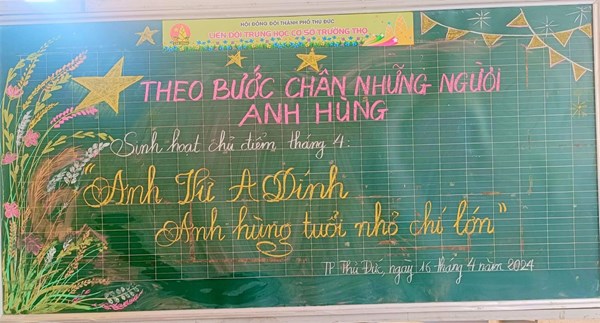 HỘI ĐỒNG ĐỘI THÀNH PHỐ THỦ ĐỨC
LIÊN ĐỘI TRUNG HỌC CƠ SỞ TRƯỜNG THỌ
THEO BƯỚC CHÂN NHỮNG NGƯỜI
ANH HÙNG
Sinh hoạt chủ điểm tháng 4:
"Anh Vừ A Dính
Anh hùng tuổi nhỏ chí lớn"
TP Thủ Đức, ngày 16 tháng 4 năm 2024